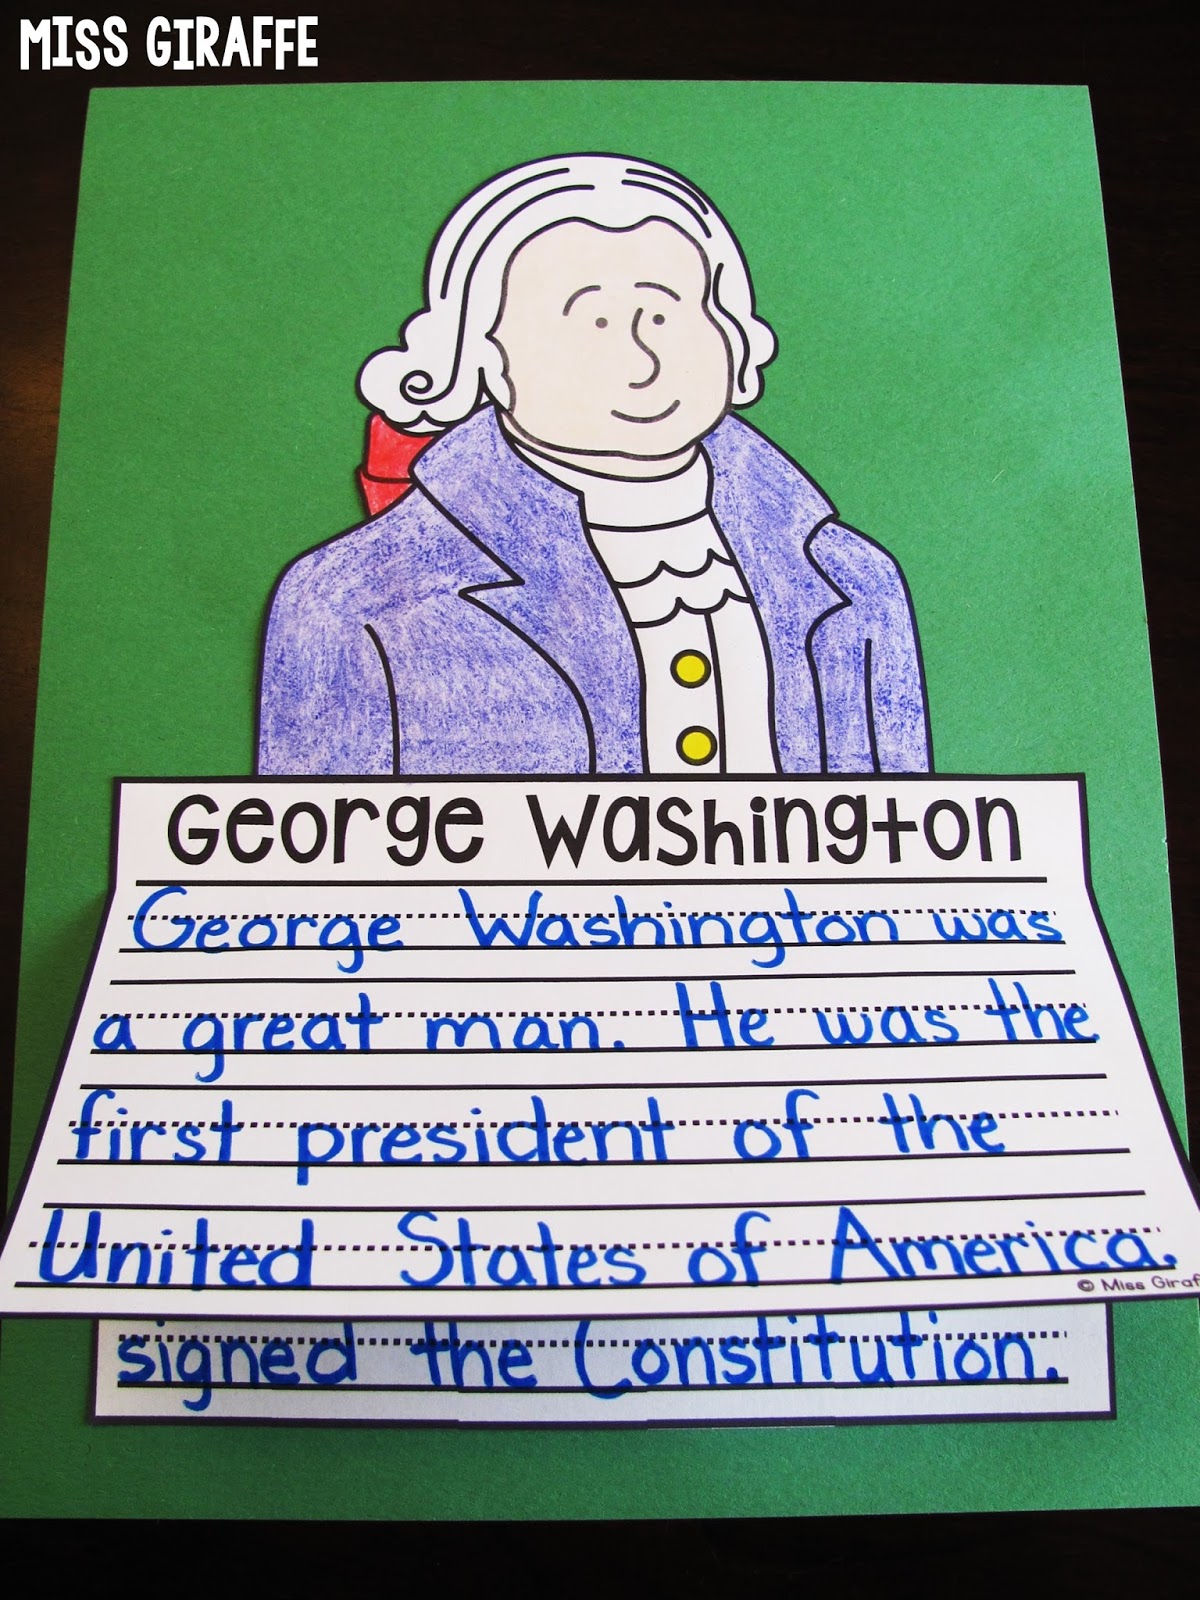 MISS GIRAFFE
George Washington
George Washington was
a great man. He was the
first president of the
United States of America.
© Miss Giraf
signed the Constitution.